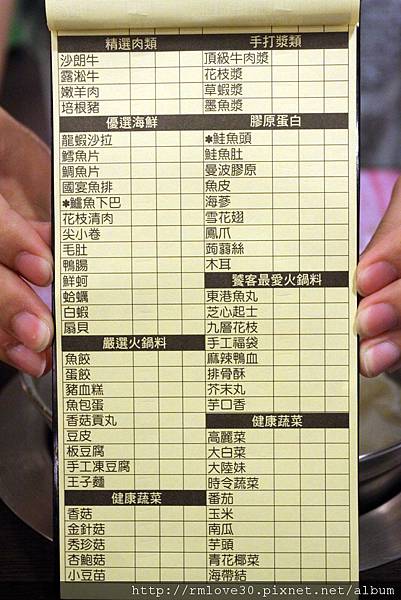 精選肉類
沙朗牛
露淞牛
嫩羊肉
培根豬
優選海鮮
龍蝦沙拉
鱈魚片
鯛魚片
國宴魚排
*鱸魚下巴
花枝清肉
尖小卷
毛肚
鴨腸
鮮蚵
蛤蠣
白蝦
扇貝
嚴選火鍋料
魚餃
蛋餃
豬血糕
魚包蛋
香菇貢丸
豆皮
板豆腐
手工凍豆腐
王子麵
健康蔬菜
香菇
金針菇
秀珍菇
杏鮑菇
小豆苗
手打漿類
頂級牛肉漿
花枝漿
草蝦漿
墨魚漿
膠原蛋白
*鮭魚頭
鮭魚肚
曼波膠原
魚皮
海蔘
雪花翅
鳳爪
蒟蒻絲
木耳
饕客最愛火鍋料
東港魚丸
芝心起士
九層花枝
手工福袋
麻辣鴨血
排骨酥
芥末丸
芋口香
健康蔬菜
高麗菜
大白菜
大陸妹
時令蔬菜
番茄
玉米
南瓜
芋頭
青花椰菜
海帶結
http://rmlove30.pixnet.net/album